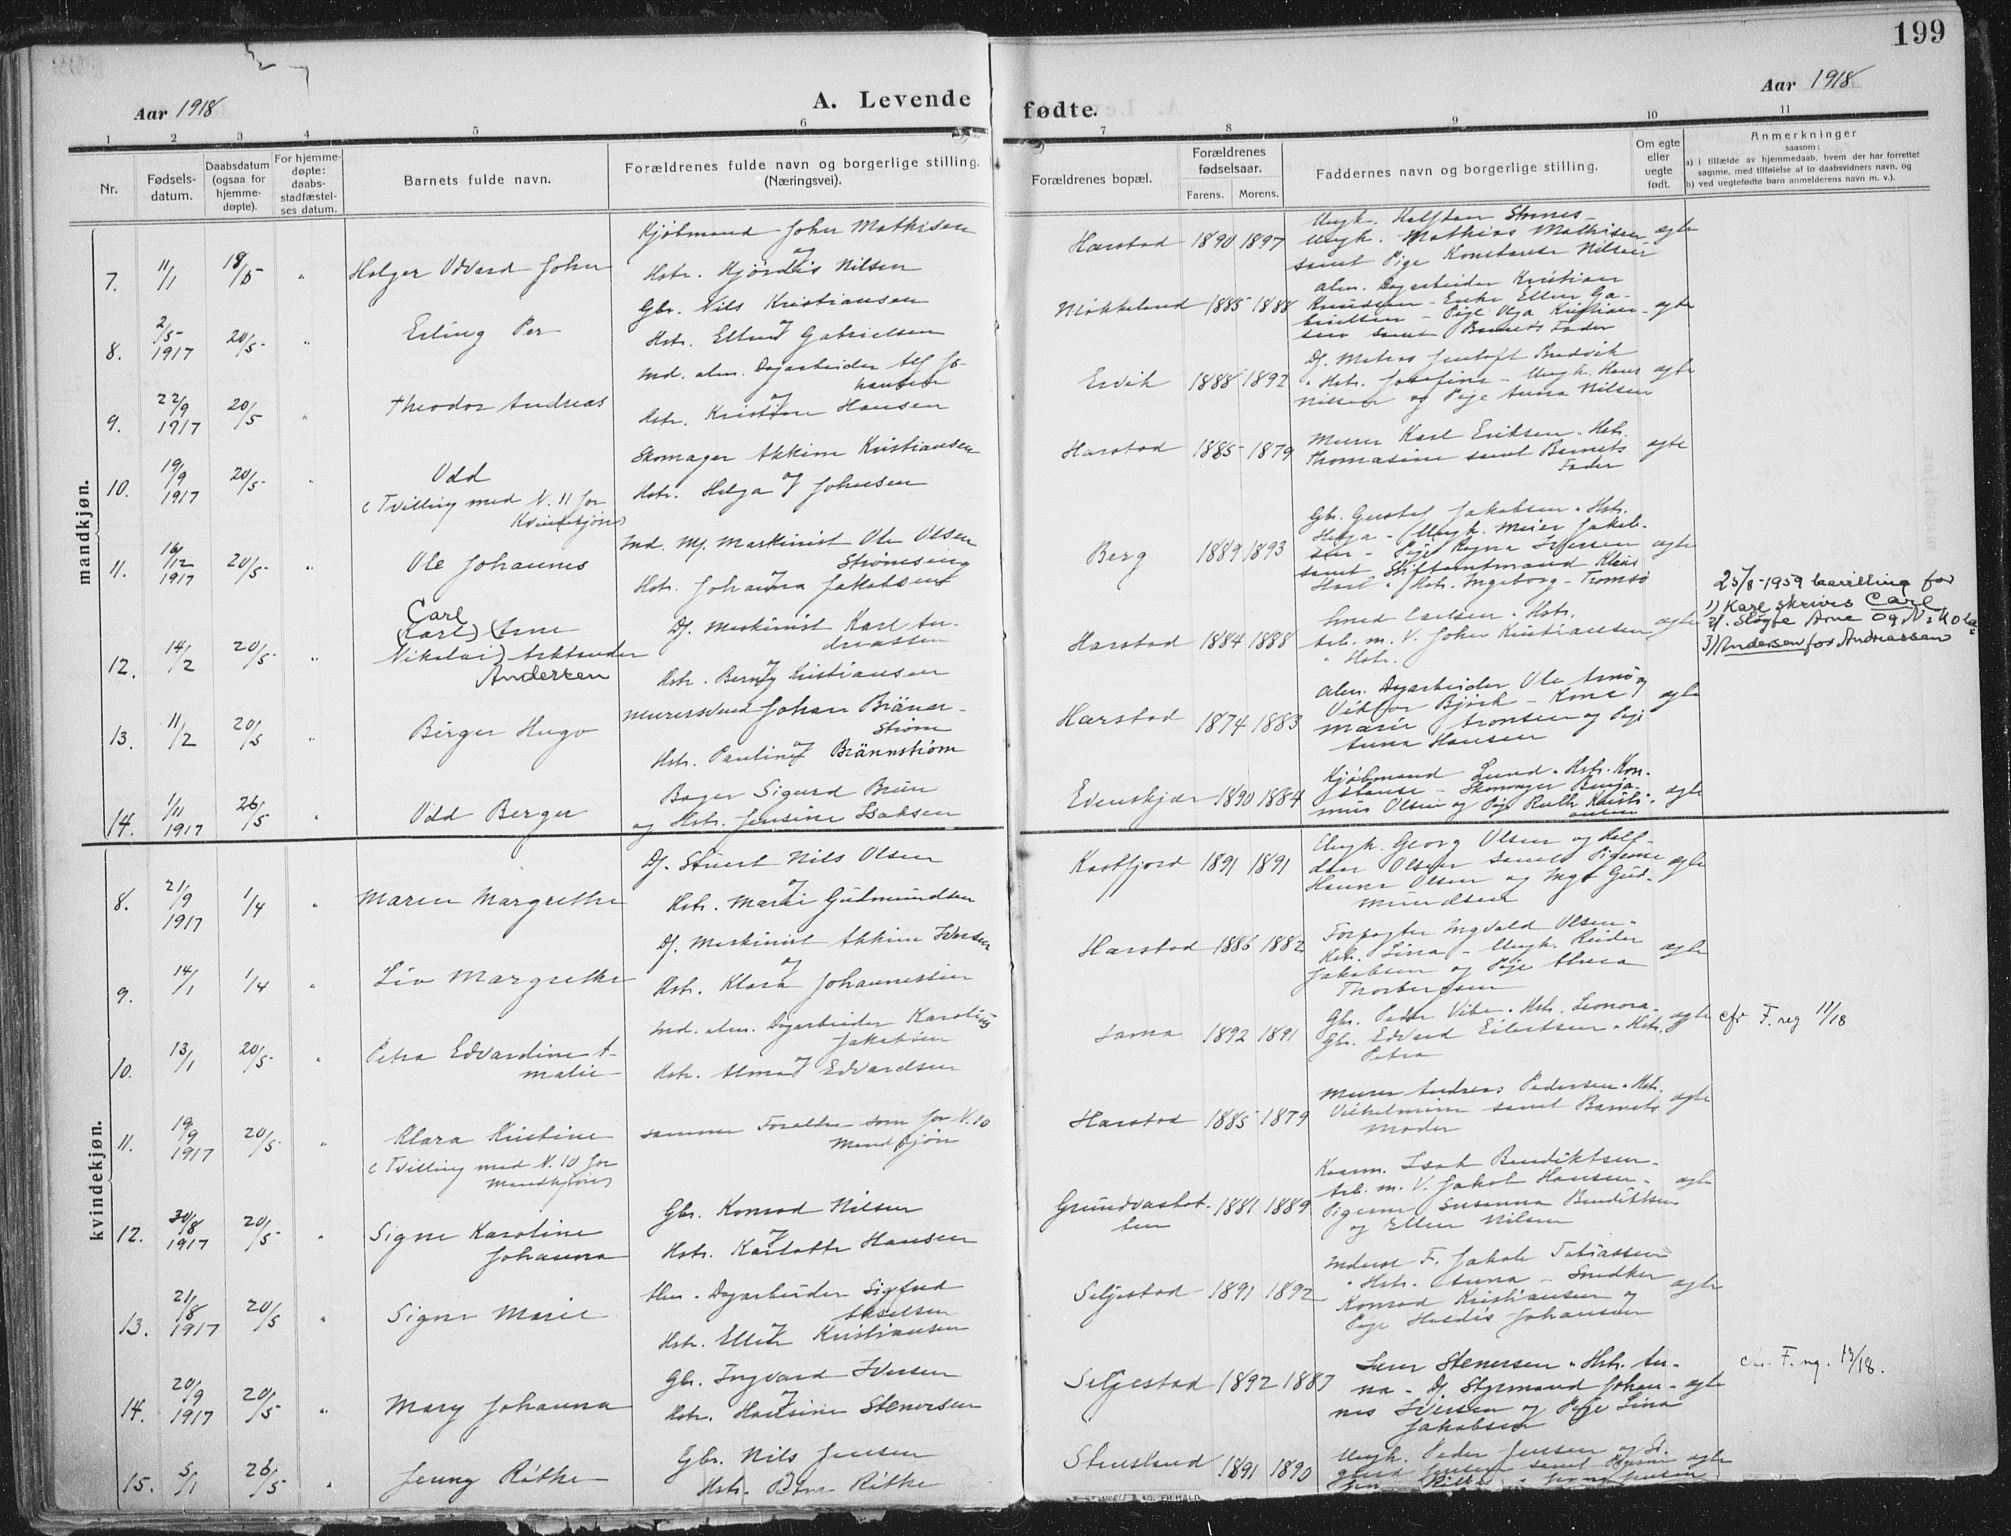 199
Aar 1918
A. Levende
fødte.
Aar 1918
1 2 3 4 5 6 7 8 9 10 11
Nr.
Fødsels-
datum.
Daabsdatum
(ogsaa for
hjemme-
døpte).
For hjemme-
døpte:
daabs-
stadfæstel-
ses datum.
Barnets fulde navn.
Forældrenes fulde navn og borgerlige stilling.
(Næringsvei).
Forældrenes bopæl.
Forældrenes
fødselsaar.
Farens. Morens.
Faddernes navn og borgerlige stilling.
Om egte
eller
uegte
født.
Anmerkninger
saasom:
a) i tilfælde av hjemmedaab, hvem der har forrettet
samme, med tilføielse af to daabsvidners navn, og
b) ved uegtefødte barn anmelderens navn m. v.).
mandkjøn.
7. 11/1 18/5 "
Holger Edvard John
Kjøbmand John Mathisen
og
Hstr. Hjørdis Nilsen
Harstad 1890 1897
Ungk. Halfdan
Ungk. Mathias Mathisen
samt Pige Konstanse Nilsen
egte
8. 2/5 1917 20/5 "
Erling Per
Gbr. Nils Kristiansen
og
Hstr. Ellen Gabrielsen
Møkkeland 1885 1888
alm. Dagarbeider Kristian
Knudsen - Enke Ellen Ga-
brielsen - Pige Olga Kristian-
sen samt Barnets Fader
egte
9. 22/9 1917 20/5 "
Theodor Andreas
Ind. alm. Dagarbeider Alf Jo-
hansen
og
Hstr. Kristine Hansen
Ervik 1888 1892
Df. Matros Jentoft Bredvik
" Hstr. Josefine - Ungk. Hans
Nilsen og Pige Anna Nilsen
egte
10. 19/9 1917 20/5 "
Odd
(Tvilling med N. 11 for
Kvindekjøn)
Skomager Akkim Kristiansen
og
Hstr. Helga Johnsen
Harstad 1885 1879
Murer Karl Eriksen " Hstr.
Thomasine samt Barnets
Fader
egte
11. 16/12 1917 20/5 "
Ole Johannes
Ind. Mf. Maskinist Ole Olsen
Strømseng
Hstr. Johanna Jakobsen
Berg 1889 1893
Gbr. Gustaf Jakobsen " Hstr.
Helga - Ungk. Meier Jakob-
sen - Pige Ragna Iversen
samt Stiftamtmand Klaus
" Hstr. Ingeborg - Tromsø
egte
12. 14/2 20/5 "
Carl
(Karl) Arne
Nikolai)
Andersen
Df. Maskinist Karl An-
dreassen
og
Hstr. Kristiansen
Harstad 1884 1888
Smed Carlsen " Hstr.
Arb. m. V. John Kristiansen
" Hstr.
egte
25/8-1959 bevilling for
1) Karl skrives Carl
2). Sløife Arne og Nikolai
3) Andersen for Andreassen
13. 11/2 20/5 "
Birger Hugo
Murersvend Johan Bränn-
strøm
og
Hstr. Pauline Brännstrøm
Harstad 1874 1883
alm. Dagarbeider Ole Arnø og
Viktor Björk - Kone
Marie Aronsen og Pige
Anna Hansen
egte
14. 1/11 1917 26/5 "
Odd Berger
Bager Sigurd
og Hstr. Jensine Isaksen
Evenskjær 1890 1884
Kjøbmand Lund " Hstr. Kon-
stanse - Skomager Benja-
min Olsen og Pige Ruth Kristi-
ansen
egte
kvindekjøn.
8. 21/9 1917 1/4 "
Maren Margrethe
Df. Stuert Nils Olsen
og
Hstr. Marie Gudmundsen
Kasfjord 1891 1891
Ungk. Georg Olsen og Half-
dan Olsen samt Pigerne
Hanna Olsen og Inga Gud-
mundsen
egte
9. 14/1 1/4 "
Liv Margrethe
Df. Maskinist Akkim Iversen
og
Hstr. Klara Johannessen
Harstad 1886 1882
Forpagter Ingvald Olsen "
Hstr. Lina - Ungk. Reidar
Jakobsen og Pige
Thorbergsen
egte
10. 13/1 20/5 "
Petra Edvardine A-
malie
Ind. alm. Dagarbeider Karolius
Jakobsen
og
Hstr. Alma Edvardsen
Sama 1892 1891
Gbr. Peder Vibe " Hstr. Leonora -
Gbr. Edvard Eilertsen " Hstr.
Petra
egte
cfr F. reg 11/18
11. 19/9 1917 20/5 "
Klara Kristine
(Tvilling med N. 10 for
Mandkjøn)
samme Forældre som for N. 10
Mandkjøn
Harstad 1885 1879
Murer Andreas Pedersen " Hstr.
Vilhelmine samt Barnets
Moder
egte
12. 30/8 1917 20/5 "
Signe Karoline
Johanna
Gbr. Konrad Nilsen
og
Hstr. Karlotte Hansen
Grundvasbot-
ten
1881 1889
Isak Bendiktsen -
Arb. m. V. Jakob Hansen -
Pigerne Susanna Bendiktsen
og Ellen Nilsen
egte
13. 21/8 1917 20/5 "
Signe Marie
Alm. Dagarbeider Sigfred
Akselsen
og
Hstr. Ellen Kristiansen
Seljestad 1891 1892
Inderst F. Jakob Tobiassen
" Hstr. Anna - Snedker
Konrad Kristiansen og
Pige Haldis Johansen
egte
14. 20/9 1917 20/5 "
Mary Johanna
Gbr. Ingvard Iversen
og
Hstr. Hansine Stenersen
Seljestad 1892 1887
Stenersen " Hstr. An-
na - Df. Styrmand Johan-
nes Iversen og Pige Lina
Jakobsen
egte
cfr. F. reg. 13/18.
15. 5/1 26/5 "
Jenny Rikke
Gbr. Nils Jensen
og
Hstr. Rikke
Stensland 1891 1890
Ungk. Peder Jensen og Si-
gurd Jensen samt Pigerne
egte